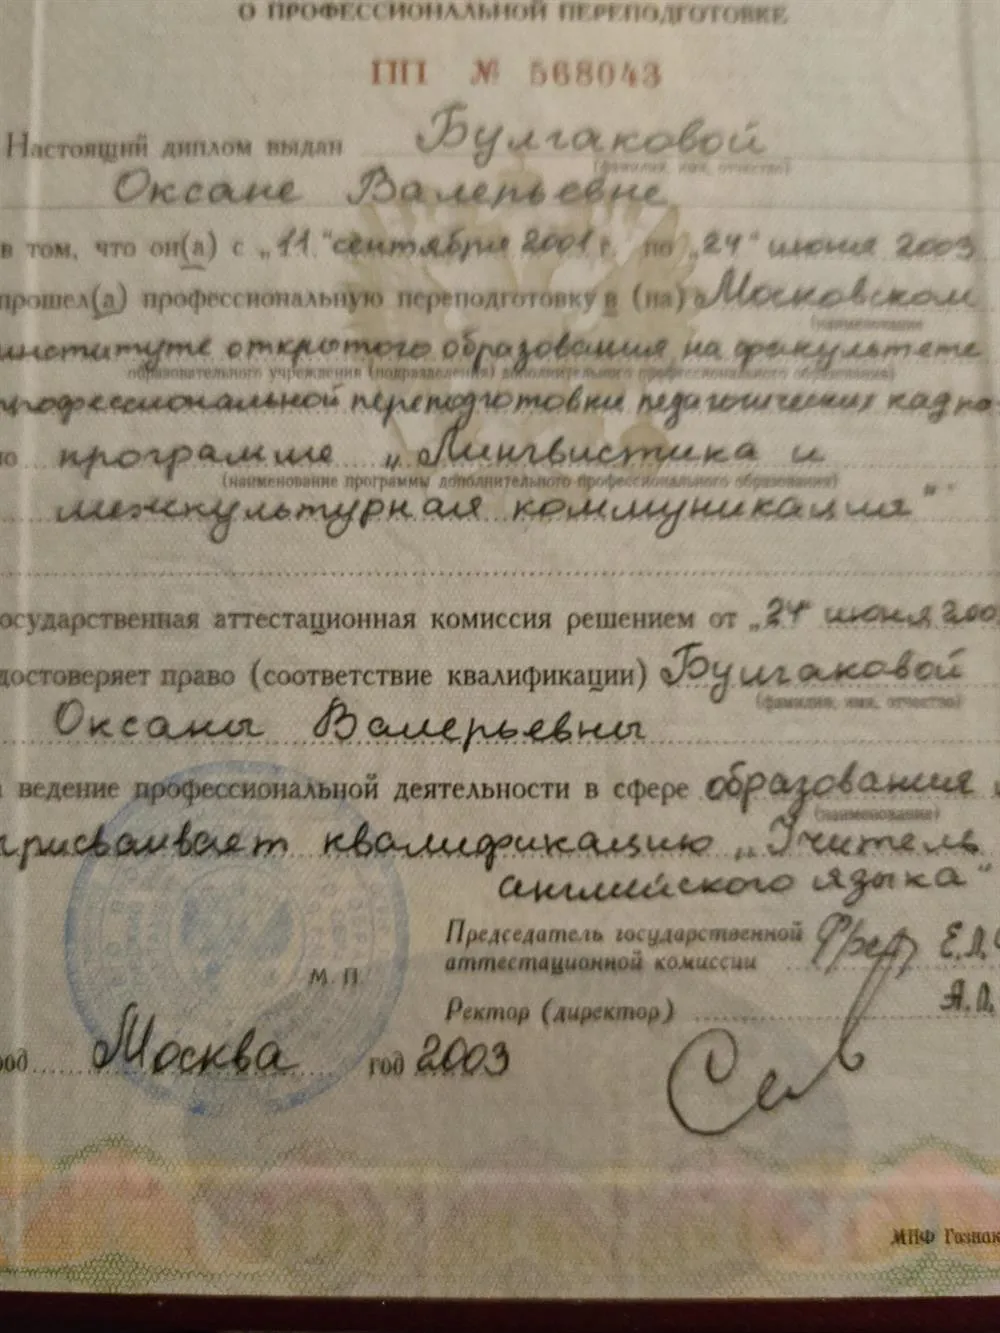 О ПРОФЕССИОНАЛЬНОЙ ПЕРЕПОДГОТОВКЕ
ПП № 568043
Настоящий диплом выдан Булгаковой
(фамилия, имя, отчество)
Оксане Валерьевне
в том, что он(а) с „11“ сентября 2001 г. по „24“ июня 2003
прошел(а) профессиональную переподготовку в (на) Московском
(наименование
институте открытого образования, на факультете
образовательного учреждения (подразделения) дополнительного профессионального образования)
профессиональной переподготовки педагогических кадро
по программе „Лингвистика и
(наименование программы дополнительного профессионального образования)
межкультурная коммуникация“
осударственная аттестационная комиссия решением от „24“ июня 200
достоверяет право (соответствие квалификации) Булгаковой
(фамилия, имя, отчество)
Оксаны Валерьевны
ведение профессиональной деятельности в сфере образования и
(наименование)
присваивает квалификацию „Учитель
английского языка“
Председатель государственной
аттестационной комиссии Е.Л.
М. П.
Ректор (директор) А.Л.
род Москва год 2003
МПФ Гознак